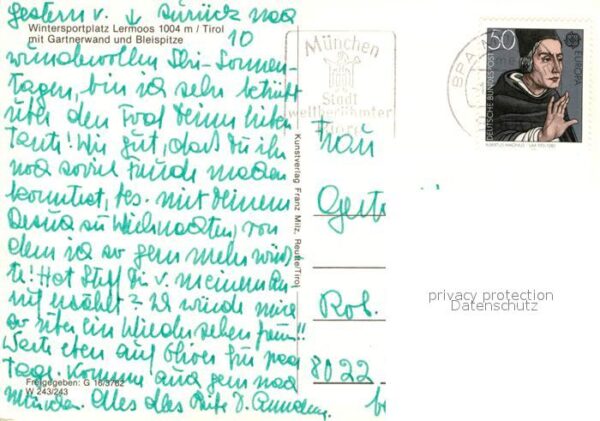 gestern v. ↓ zurück nach
Wintersportplatz Lermoos 1004 m / Tirol
mit Gartnerwand und Bleispitze
10
wundervollen Ski-Sonnen-
tagen, bin ich sehr betrübt
über den Tod Deiner lieben
Tante! Wie gut, dass Du ihr
noch soviel Freude machen
konntest, bes. mit Deinem
Besuch zu Weihnachten, von
dem ich so gern mehr wüß-
te! Hat Steff Dir v. meinem An-
ruf erzählt? Ich würde mich
so über ein Wiedersehen freun!!
Warte eben auf Oliver für paar
Tage. Komme auch gern nach
Freigegeben: G 16/3762
W 243/243
München. Alles Liebe D.
Kunstverlag Franz Milz, Reutte/Tirol
München
Stadt
weltberühmter
Biere
BPA M
50
DEUTSCHE BUNDESPOST
EUROPA
ALBERTUS MAGNUS
Frau
Gert
Rob.
8022
privacy protection
Datenschutz